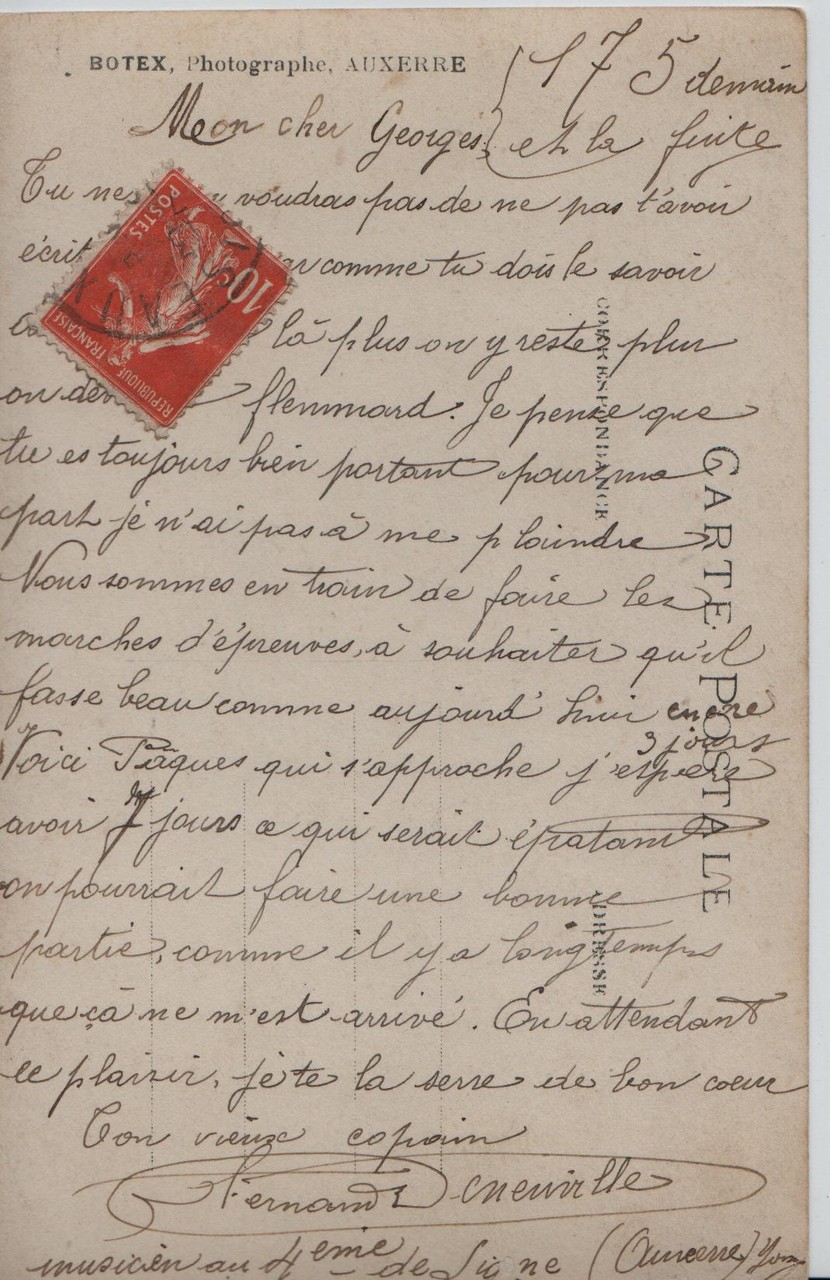 BOTEX, Photographe, AUXERRE
175 demain
et la fuite
Mon cher Georges,
Tu ne voudras pas de ne pas t'avoir
écrit car comme tu dois le savoir
là plus on y reste plus
on dev flemmard. Je pense que
tu es toujours bien portant pour ma
part je n'ai pas à me plaindre
Nous sommes en train de faire les
marches d'épreuves, à souhaiter qu'il
fasse beau comme aujourd'hui encore
3 jours
Voici Pâques qui s'approche j'espère
avoir 7 jours ce qui serait épatant
on pourrait faire une bonne
partie, comme il y a longtemps
que çà ne m'est arrivé. En attendant
ce plaisir, je te la serre de bon coeur
Ton vieux copain
Fernand
musicien au 4eme de Ligne (Auxerre) Yonne
POSTES
10
REPUBLIQUE FRANÇAISE
CARTE POSTALE
CORRESPONDANCE
ADRESSE